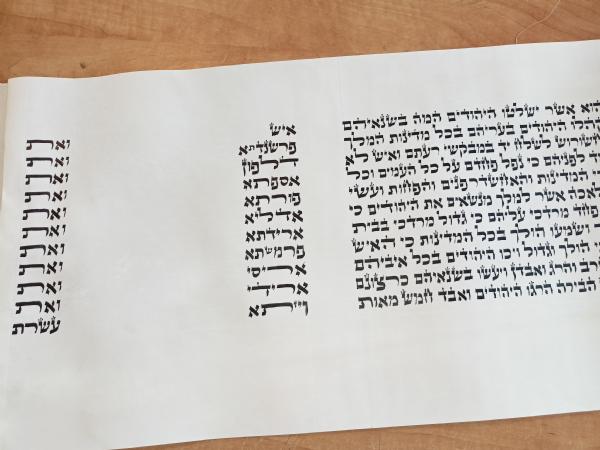 הוא אשר ישלטו היהודים המה בשנאיהם
קהלו היהודים בעריהם בכל מדינות המלך
חשורוש לשלח יד במבקשי רעתם ואיש לא
ד לפניהם כי נפל פחדם על כל העמים וכל
י המדינות והאחשדרפנים והפחות ועשי
לאכה אשר למלך מנשאים את היהודים כי
פחד מרדכי עליהם כי גדול מרדכי בבית
ושמעו הולך בכל המדינות כי האיש
י הולך וגדול ויכו היהודים בכל איביהם
רב והרג ואבדן ויעשו בשנאיהם כרצונם
הבירה הרגו היהודים ואבד חמש מאות
איש
פרשנדתא
דלפון
אספתא
פורתא
אדליא
ארידתא
פרמשתא
אריסי
ארידי
ויזתא
ואת
ואת
ואת
ואת
ואת
ואת
ואת
ואת
ואת
ואת
עשרת